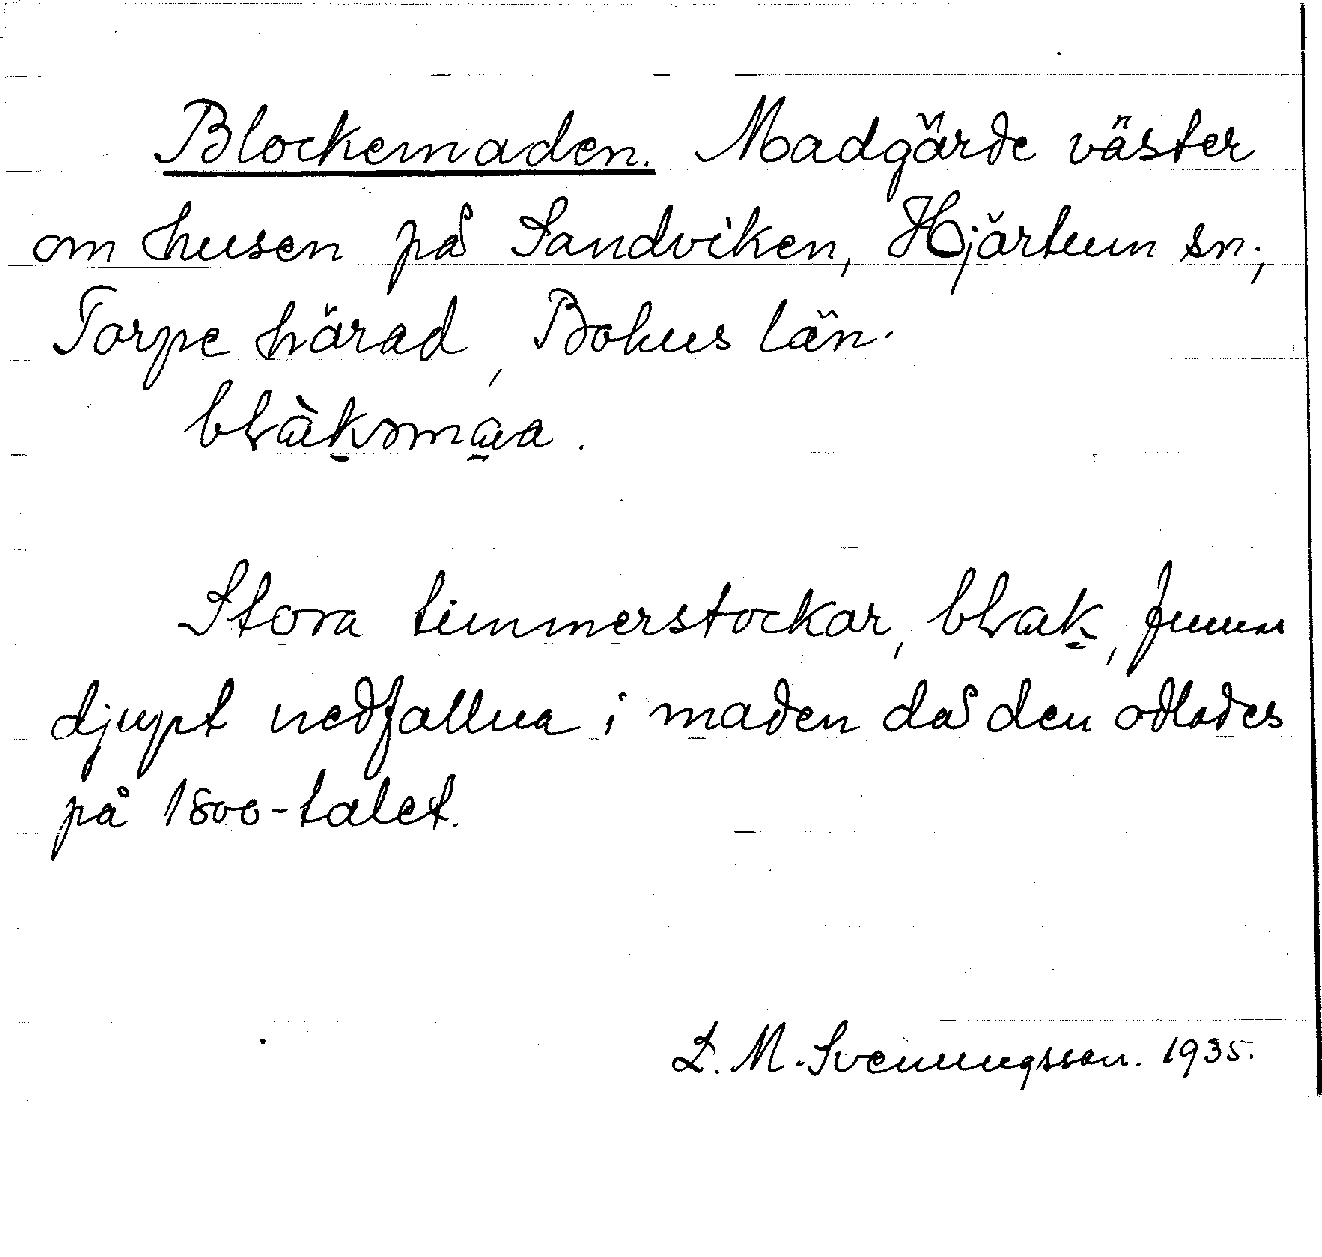 Blockemaden. Madgärde väster
om husen på Sandviken, Hjärtum sn.,
Torpe härad, Bohus län.
Stora timmerstockar, funna
djupt nedfallna i maden då den odlades
på 1800-talet.
L. M. Svenungsson. 1935.